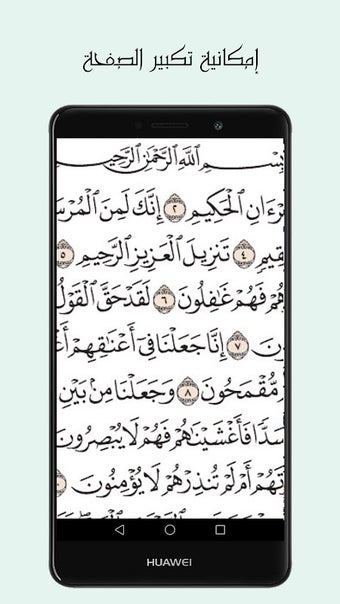 إمكانية تكبير الصفحة
بِسْمِ ٱللَّهِ ٱلرَّحْمَٰنِ ٱلرَّحِيمِ
ٱلْحَكِيمِ ٢ إِنَّكَ لَمِنَ
٤ تَنزِيلَ ٱلْعَزِيزِ ٱلرَّحِيمِ ٥
فَهُمْ غَٰفِلُونَ ٦ لَقَدْ حَقَّ ٱلْقَوْلُ
٧ إِنَّا جَعَلْنَا فِىٓ أَعْنَٰقِهِمْ
مُّقْمَحُونَ ٨ وَجَعَلْنَا مِنۢ بَيْنِ
سَدًّا فَأَغْشَيْنَٰهُمْ فَهُمْ لَا يُبْصِرُونَ
أَمْ لَمْ تُنذِرْهُمْ لَا يُؤْمِنُونَ
HUAWEI